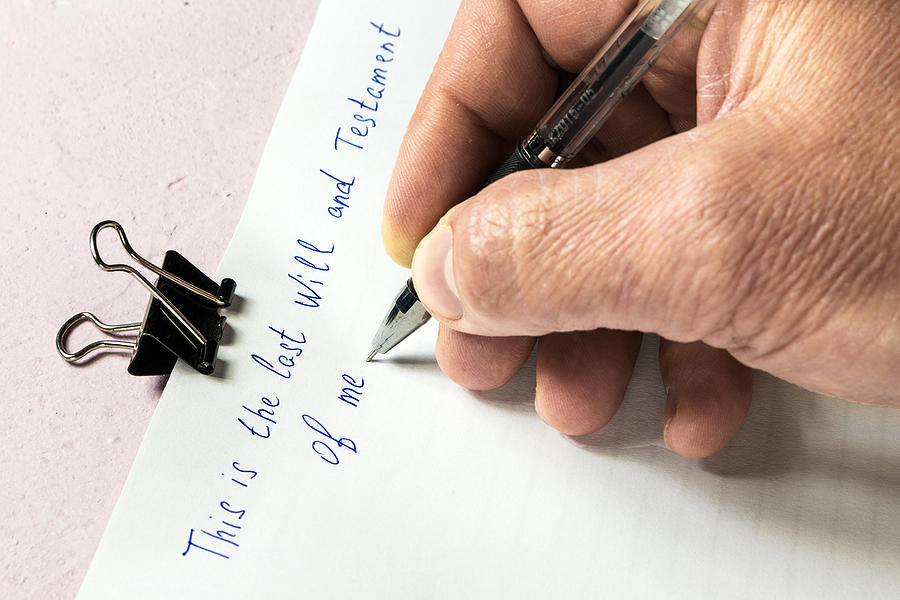 This is the last Will and Testament
of me